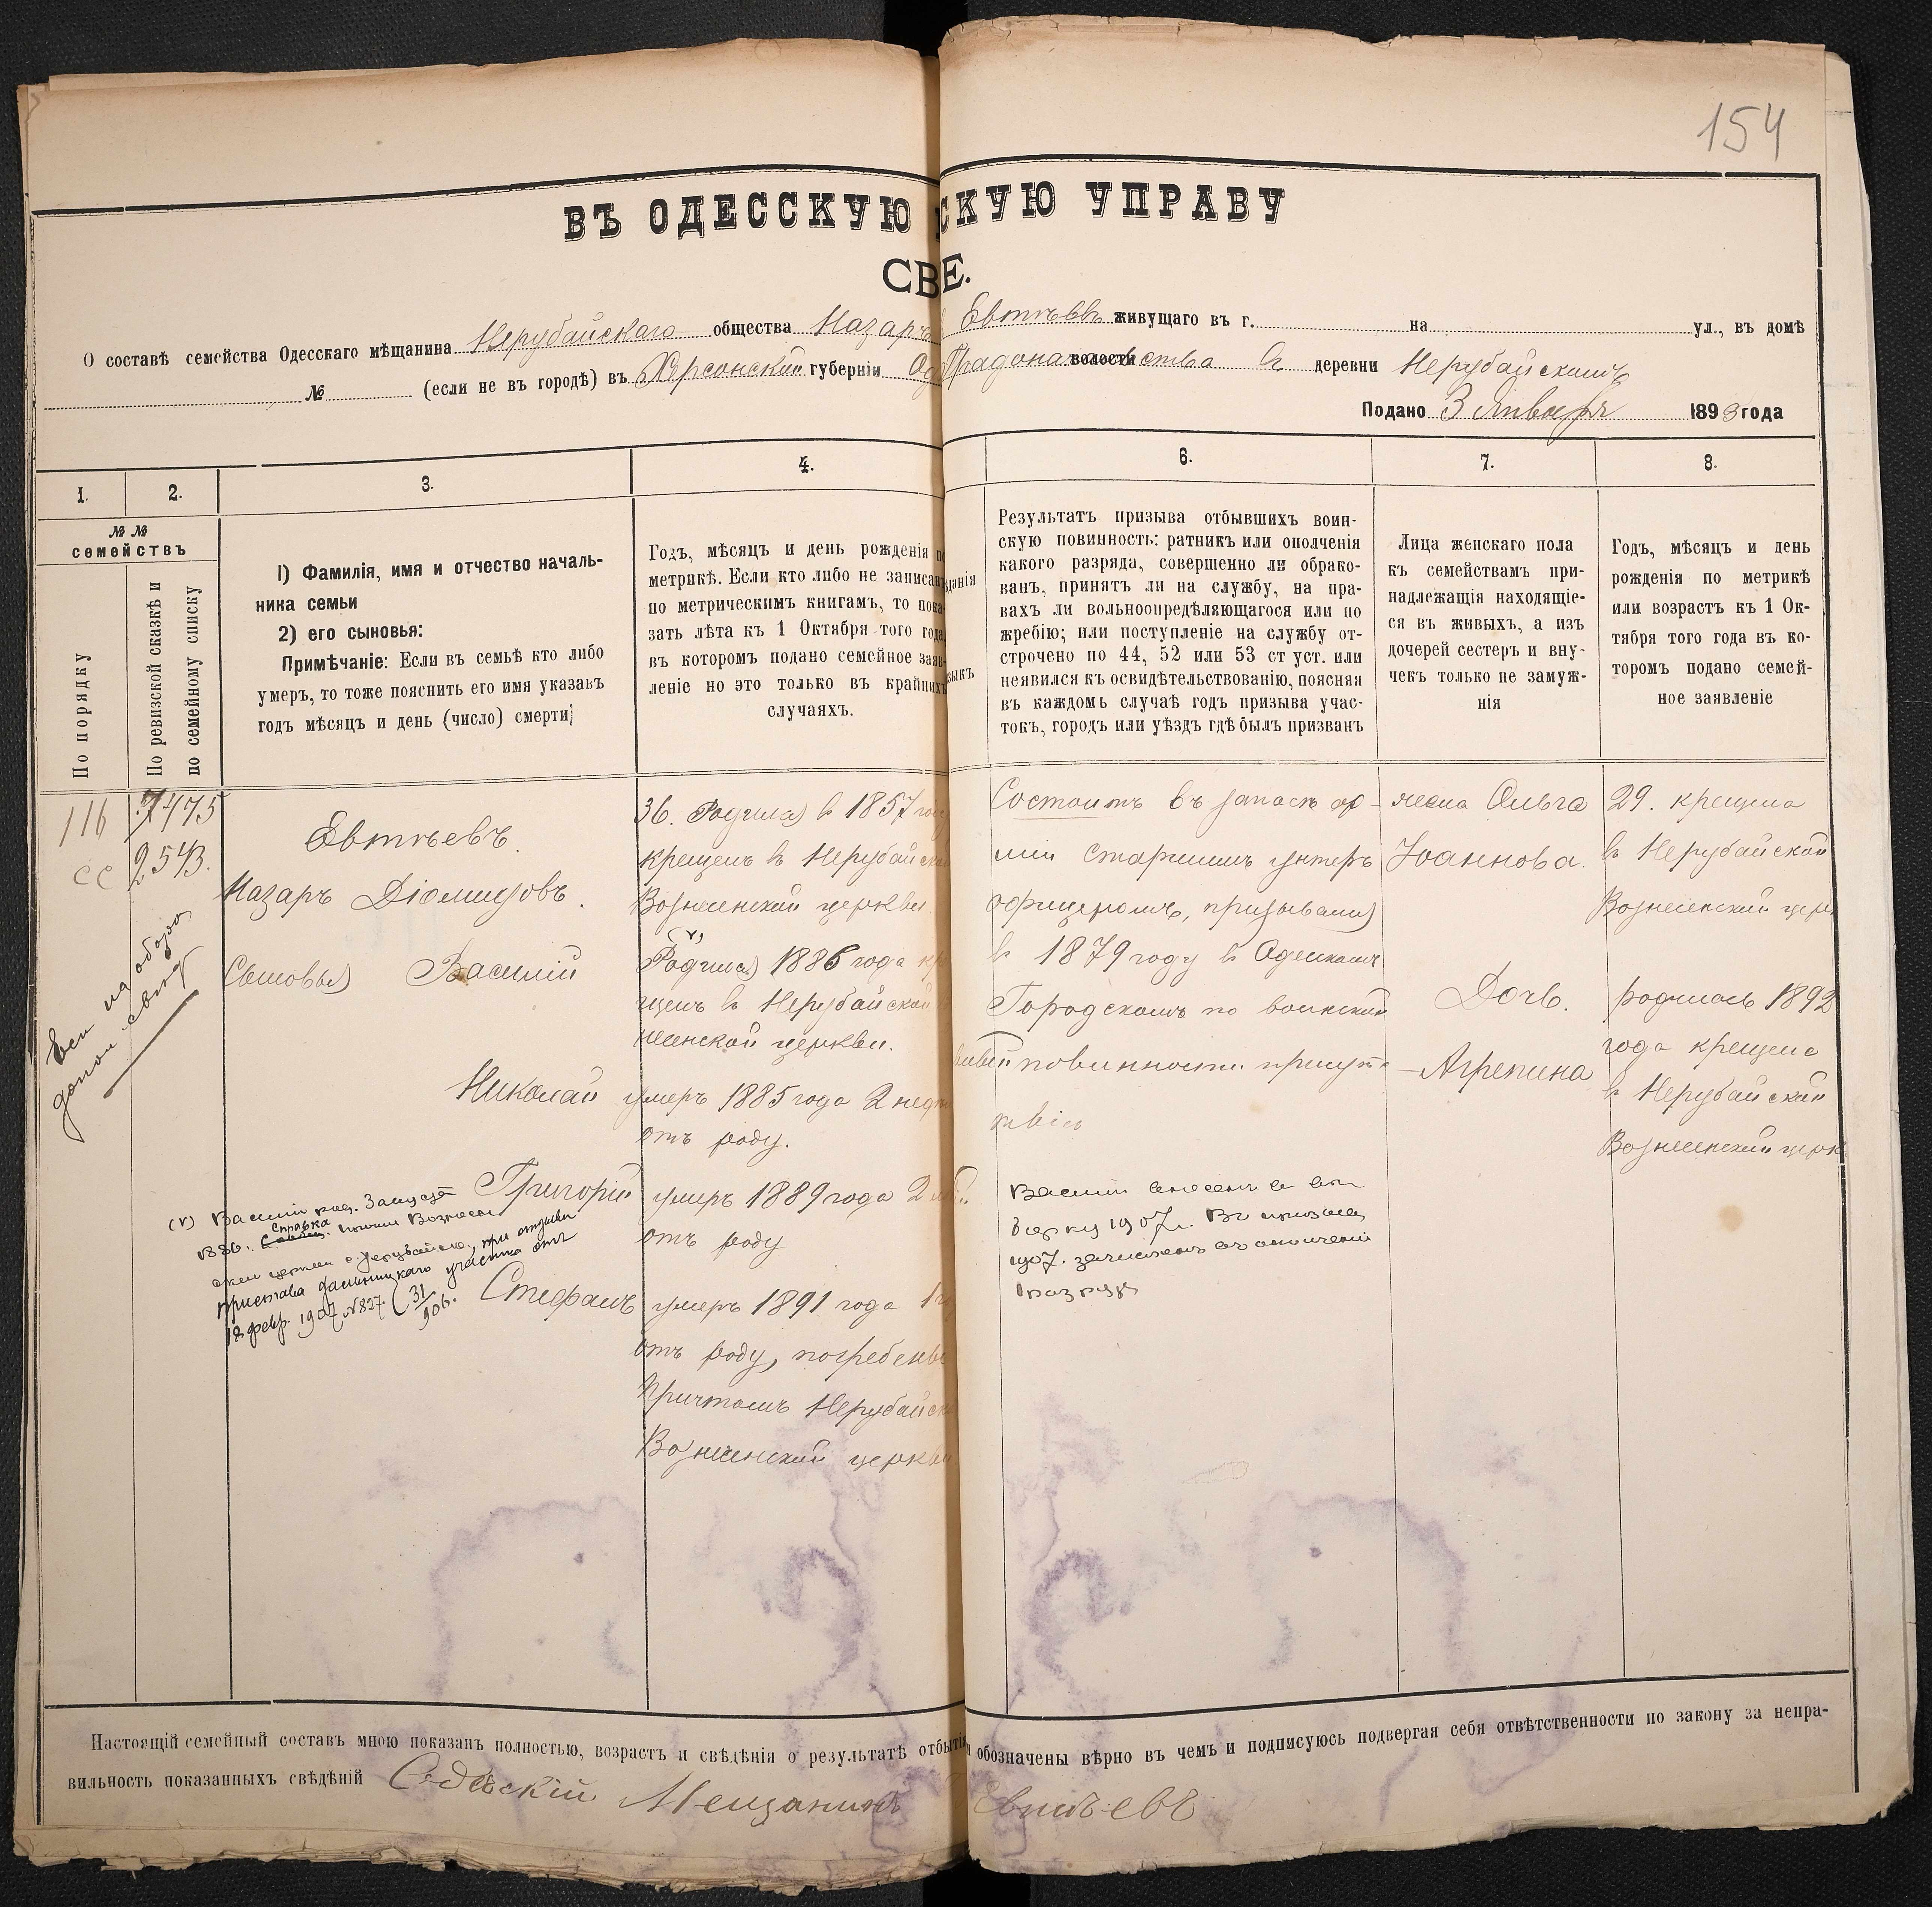 154
ВЪ ОДЕССКУЮ
СКУЮ УПРАВУ
СВЕ.
О составѣ семейства Одесскаго мѣщанина Нерубайскаго общества Назаръ Евтѣевъ живущаго въ г. на ул., въ домѣ
№ (если не въ городѣ) въ Херсонской губерніи Од Градоначальства волости въ деревни Нерубайскомъ
Подано 3 Января 1893 года
1.
2.
3.
4.
6.
7.
8.
№ №
семействъ
По порядку
По ревизской сказкѣ и
по семейному списку
1) Фамилія, имя и отчество началь-
ника семьи
2) его сыновья:
Примѣчаніе: Если въ семьѣ кто либо
умеръ, то тоже пояснить его имя указавъ
годъ мѣсяцъ и день (число) смерти;
Годъ, мѣсяцъ и день рожденія по
метрикѣ. Если кто либо не записан
по метрическимъ книгамъ, то пока-
зать лѣта къ 1 Октября того года
въ которомъ подано семейное заяв-
леніе но это только въ крайнихъ
случаяхъ.
данія
зыкъ
Результатъ призыва отбывшихъ воин-
скую повинность: ратникъ или ополченія
какого разряда, совершенно ли обрако-
ванъ, принятъ ли на службу, на пра-
вахъ ли вольноопредѣляющагося или по
жребію; или поступленіе на службу от-
строчено по 44, 52 или 53 ст уст. или
неявился къ освидѣтельствованію, поясняя
въ каждомъ случаѣ годъ призыва учас-
токъ, городъ или уѣздъ гдѣ былъ призванъ
Лица женскаго пола
къ семействамъ при-
надлежащія находящіе-
ся въ живыхъ, а изъ
дочерей сестеръ и вну-
чекъ только не замуж-
нія
Годъ, мѣсяцъ и день
рожденія по метрикѣ
или возрастъ къ 1 Ок-
тября того года въ ко-
торомъ подано семей-
ное заявленіе
116
7475
2543.
Есть на оборотѣ
допол. свѣд.
Евтѣевъ.
Назаръ Діомидовъ.
Сыновья Василій
Николай
Григорій
Стефанъ
(v) Василій род.
Справка
церкви с. Нерубайска, при отзывѣ
пристава Дальницкаго участка отъ
12 февр. 1907 №827. (31/906.
36. Родился въ 1857 году
крещенъ въ Нерубайской
Вознесенской церкви.
(v)
Родился 1886 года кр
щенъ въ Нерубайской
несенской церкви.
умеръ 1885 года 2 недѣ
отъ роду.
умеръ 1889 года 2
отъ роду
умеръ 1891 года 1
отъ роду, погребенъ
Причтомъ Нерубайск
Вознесенской церкви
Состоитъ въ запасѣ ар-
міи старшимъ унтеръ
офицеромъ, призывался
въ 1879 году въ Одесскомъ
Городскомъ по воинской
повинности присут-
ствіи
Василій внесенъ въ
1907 г. Въ призывъ
1907. зачисленъ въ ополченіе
1 разряда
жена Ольга
Іоаннова.
Дочь.
Агрепина
29. крещена
въ Нерубайской
Вознесенской церк.
родилась 1892
года крещена
въ Нерубайской
Вознесенской церк
Настоящій семейный составъ мною показанъ полностью, возрастъ и свѣдѣнія о результатѣ отбытія обозначены вѣрно въ чемъ и подписуюсь подвергая себя отвѣтственности по закону за непра-
вильность показанныхъ свѣдѣній Одескій Мещанинъ Евтѣевъ